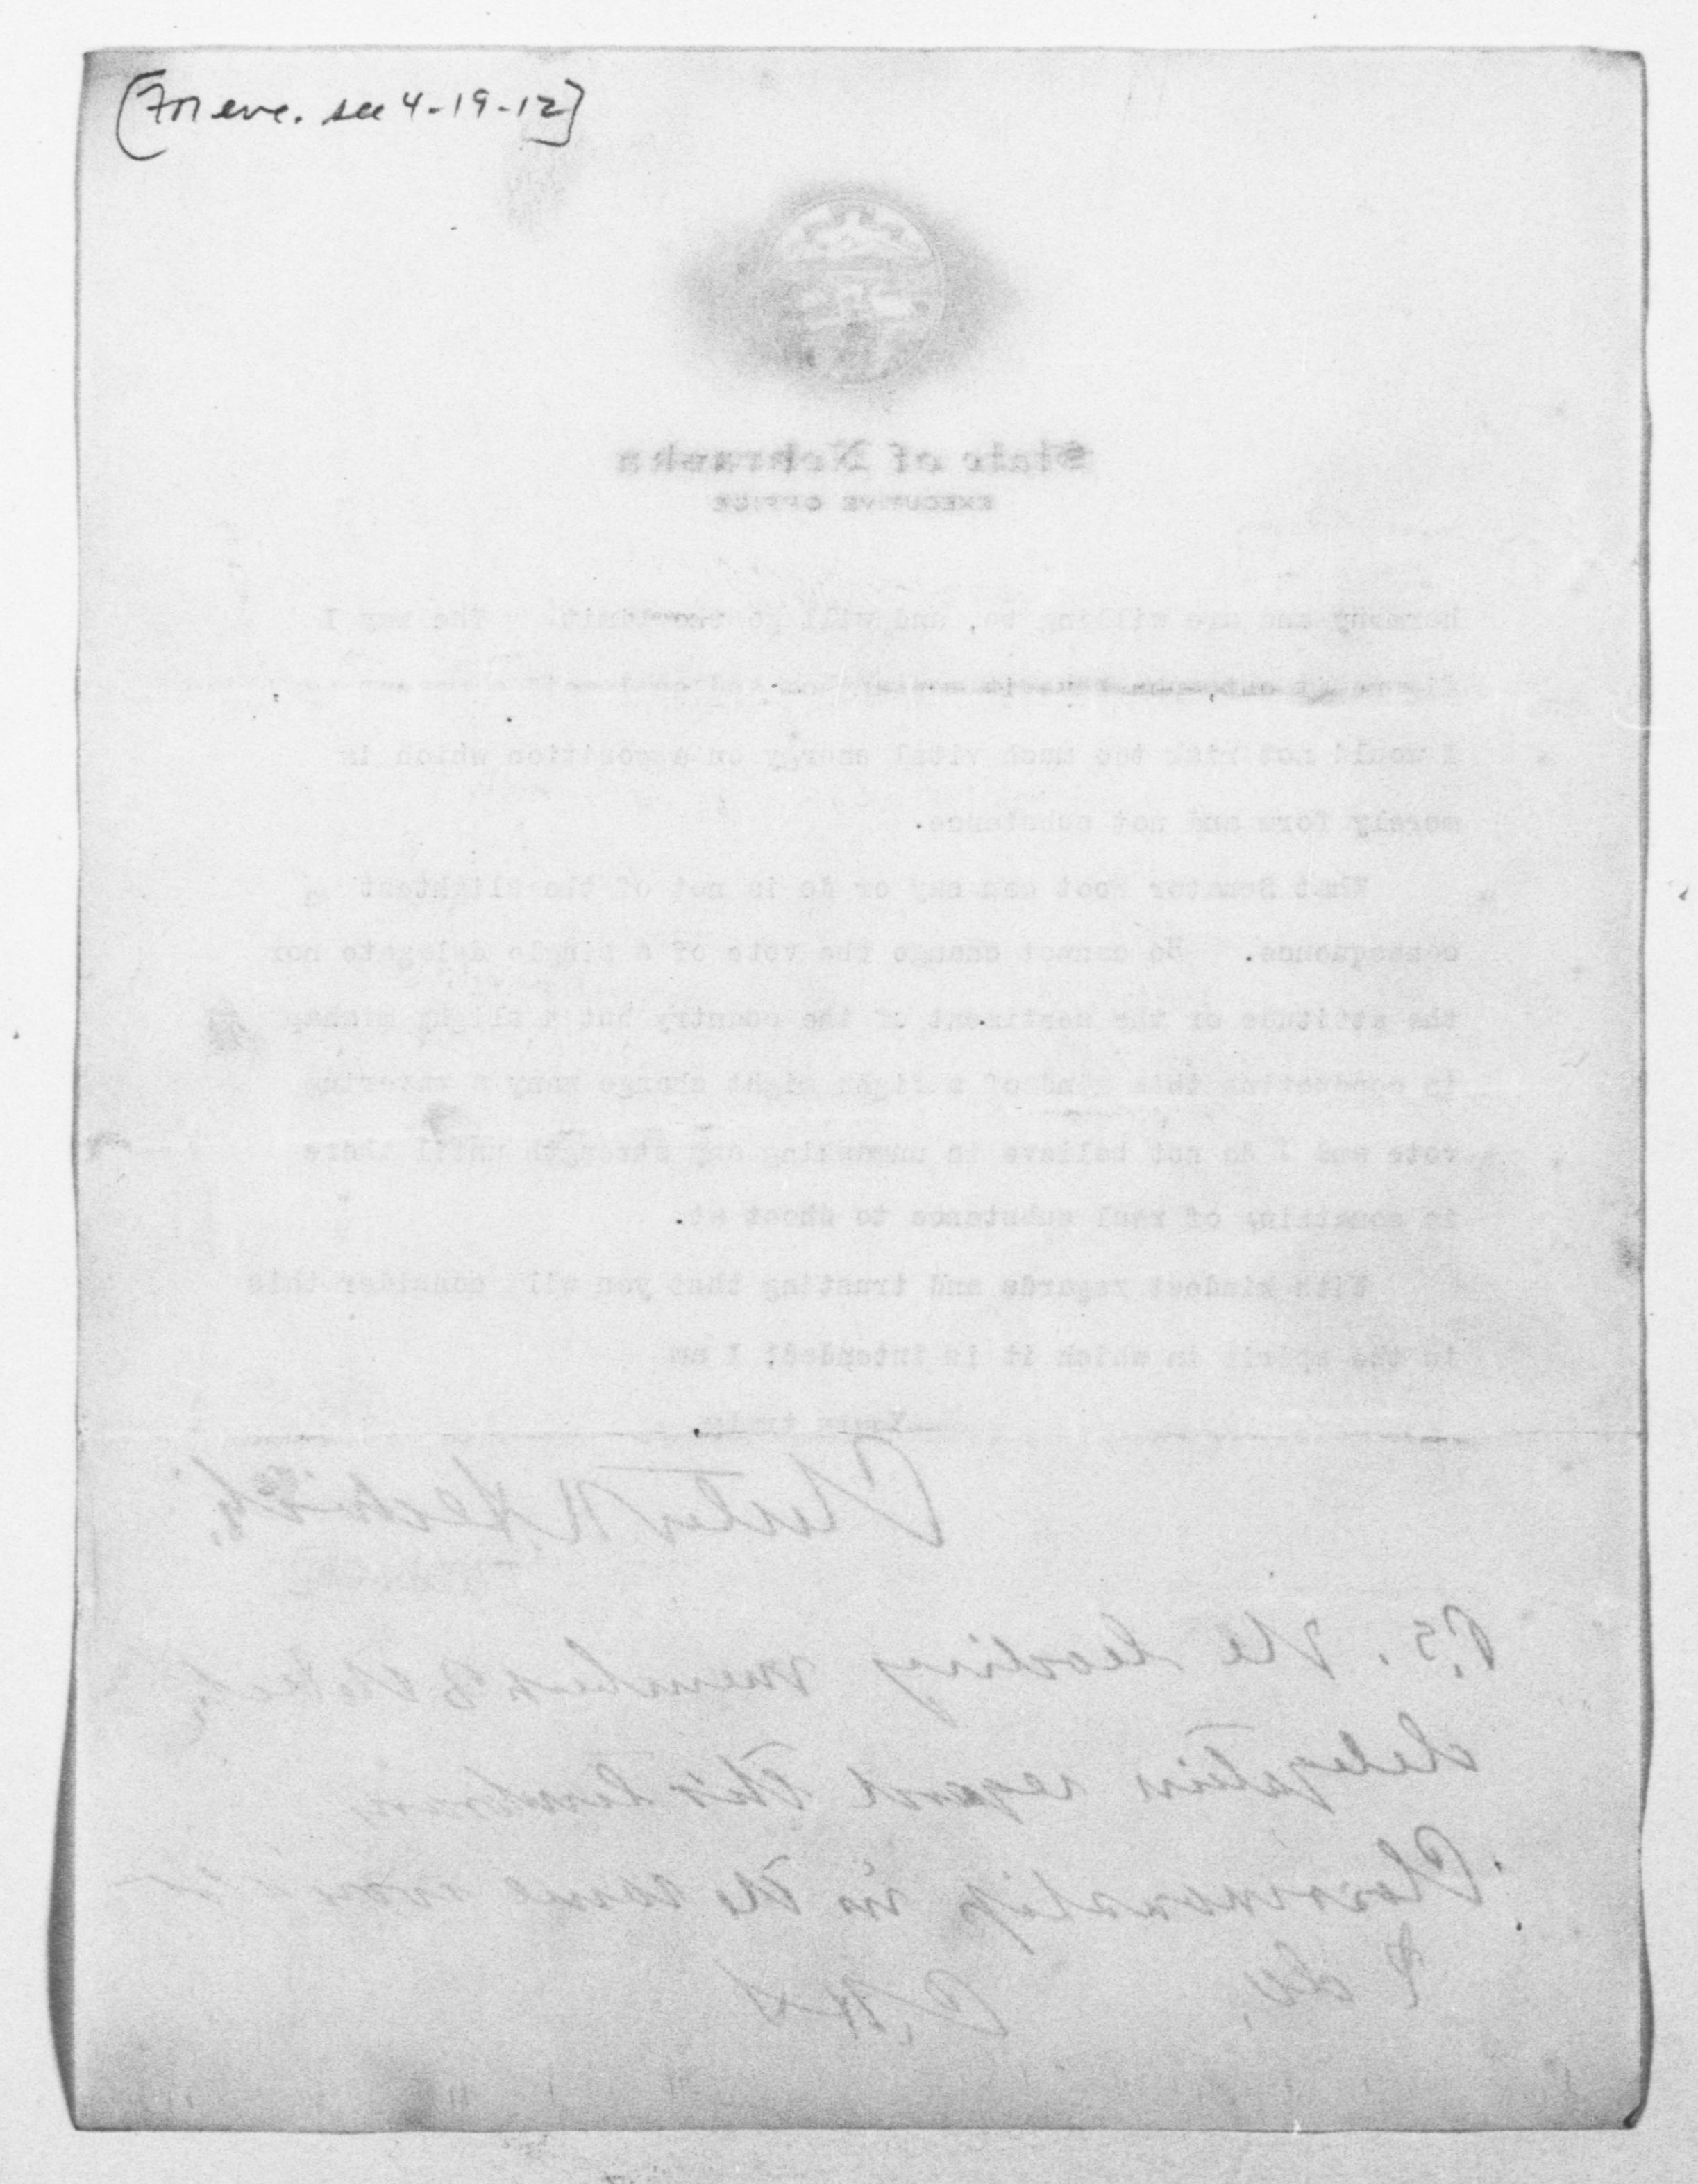 [For enc. see 4-19-12]
State of Nebraska
EXECUTIVE OFFICE
harmony and are willing to, and will go the limit. The way I
I would not risk too much vital energy on a position which is
merely form and not substance.
What Senator Root can say or do is not of the slightest
consequence. He cannot change the vote of a single delegate nor
the attitude or the sentiment of the country but a slight
in conducting this kind of a fight might change many a wavering
vote and I do not believe in unmasking any strength until there
is something of real substance to shoot at.
With kindest regards and trusting that you will consider this
in the spirit in which it is intended; I am
Yours truly,
Chester H. Aldrich
P.S. The leading members of
delegation regard this temporary
Chairmanship in the same
I do. C.H.A